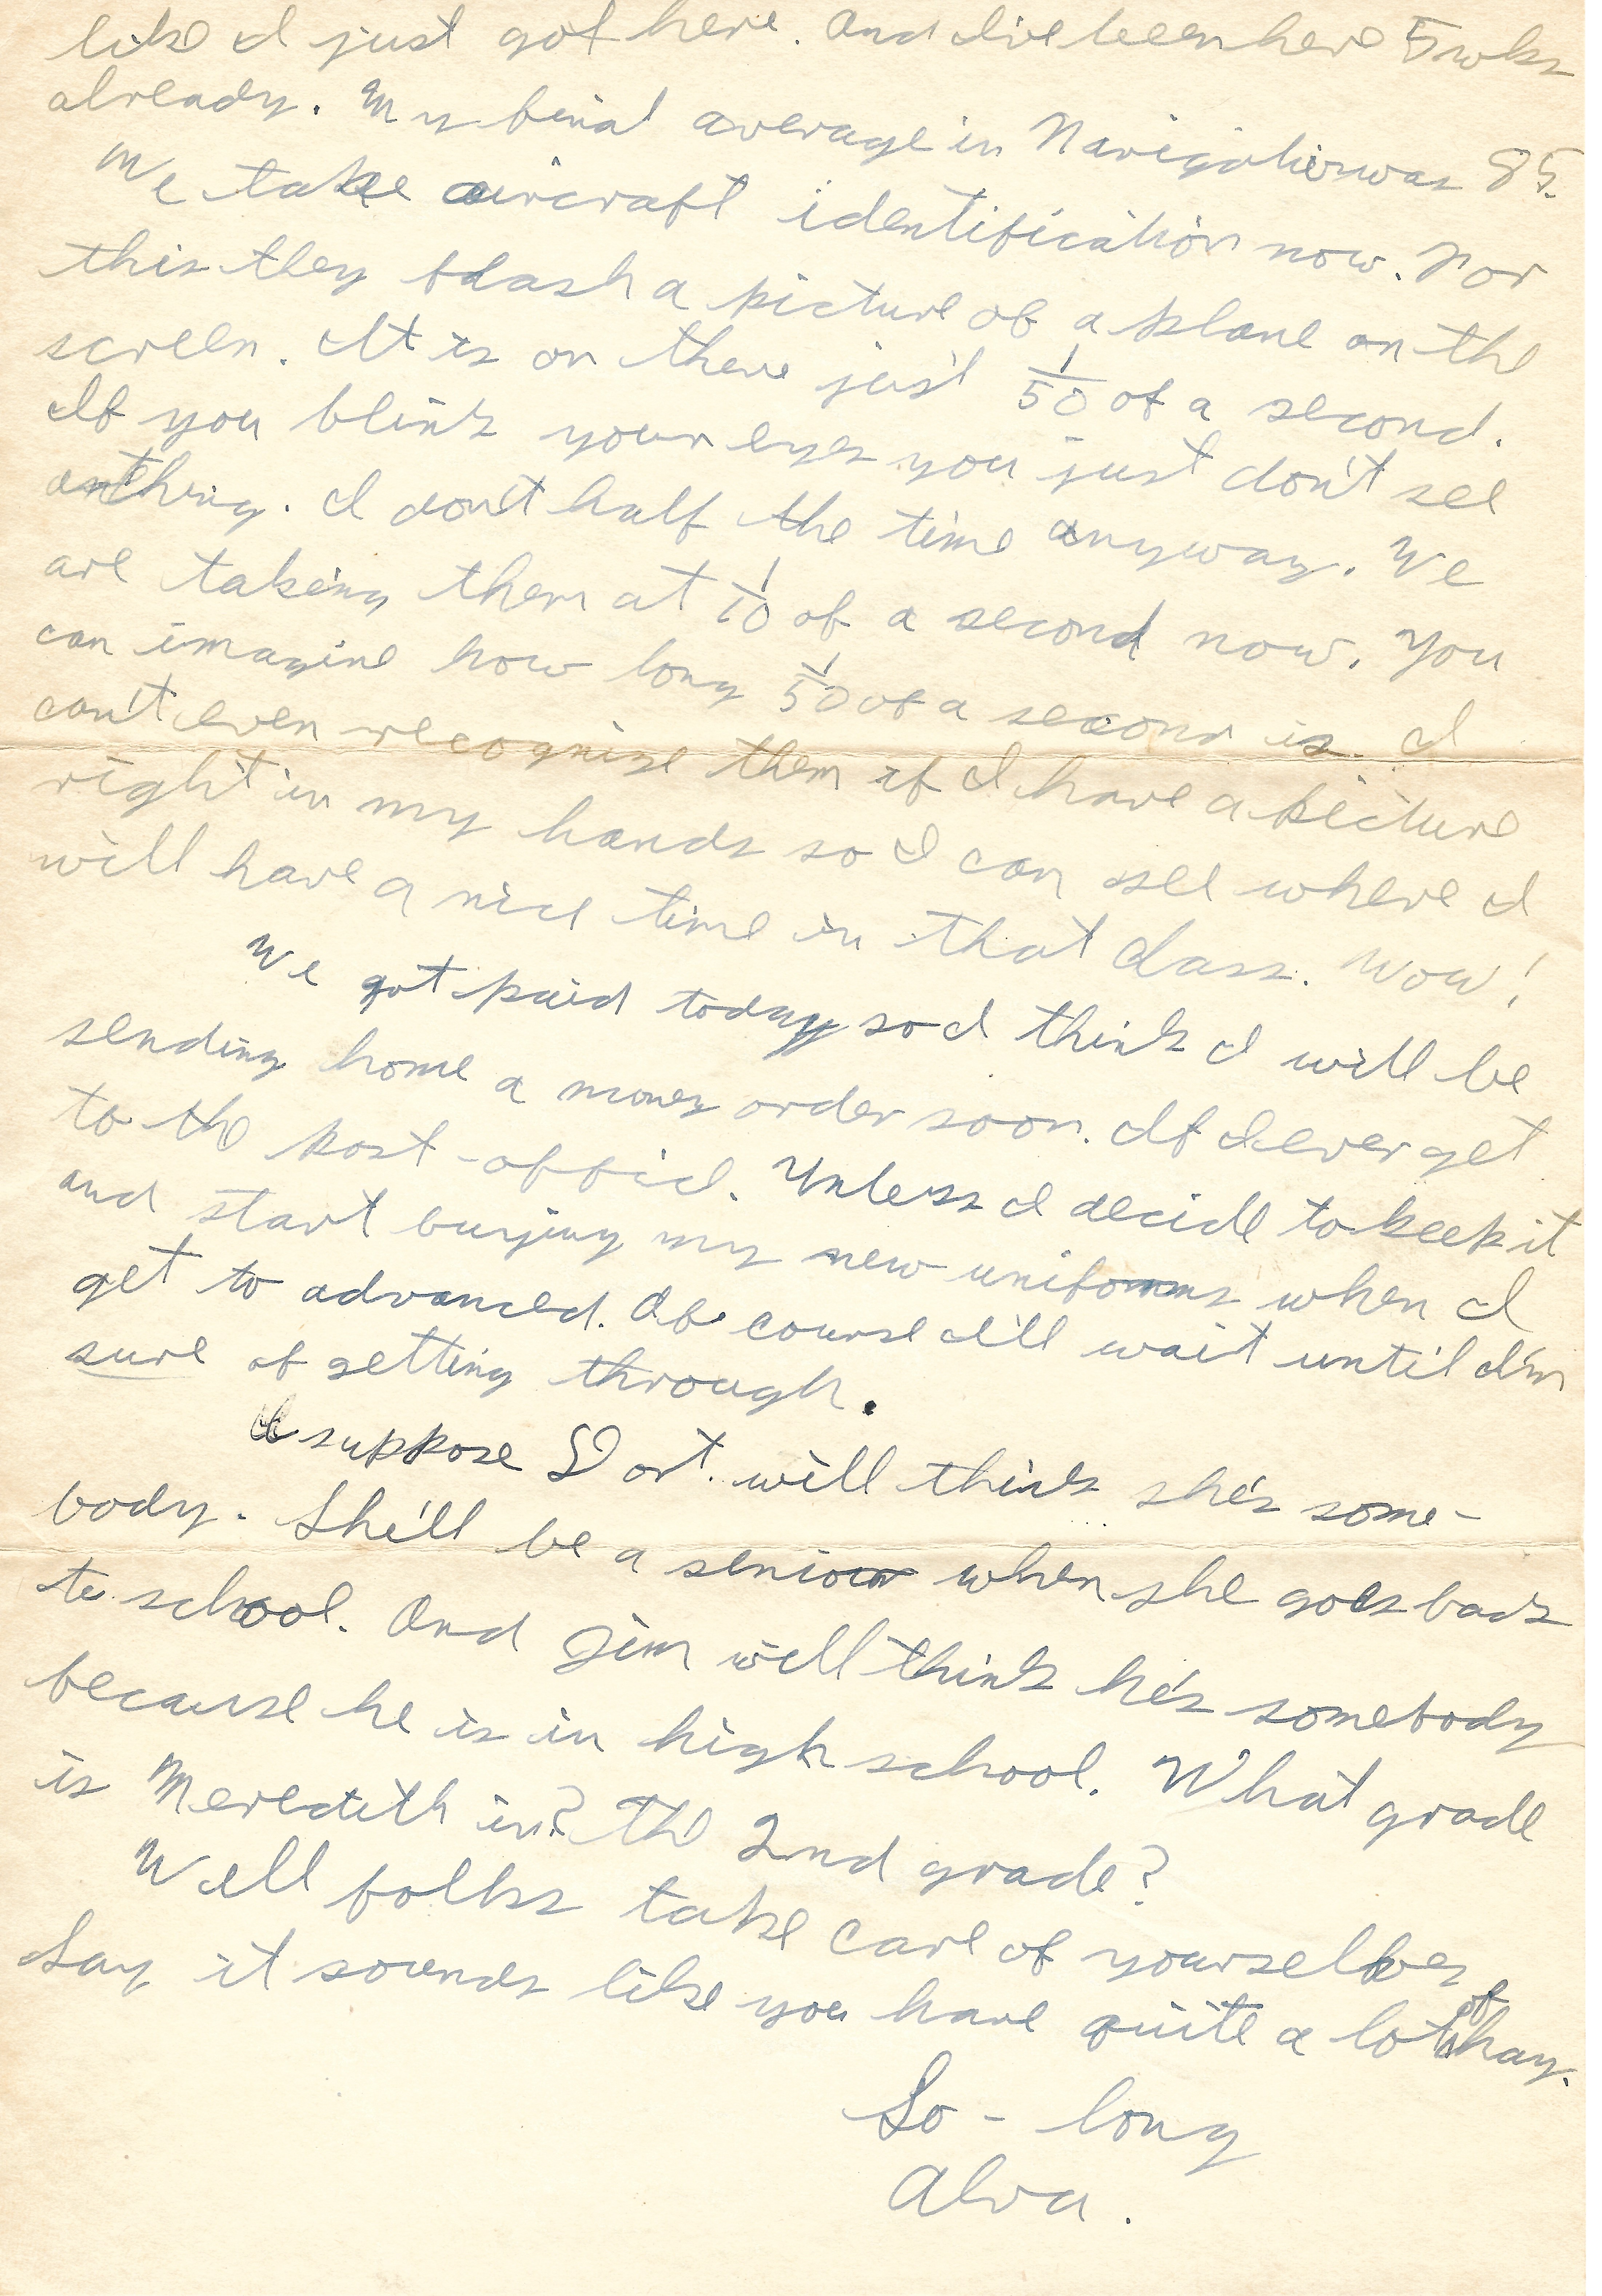 like I just got here. And I've been here 5 wks
already. My final average in Navigation was 85.
We take aircraft identification now. For
this they flash a picture of a plane on the
screen. It is on there just 1/50 of a second.
If you blink your eyes you just don't see
anthing. I don't half the time anyway. We
are taking them at 1/10 of a second now. You
can imagine how long 1/50 of a second is. I
can't even recognize them if I have a picture
right in my hands so I can see where I
will have a nice time in that class. Wow!
We got paid today so I think I will be
sending home a money order soon. If I ever get
to the post-office. Unless I decide to keep it
and start buying my new uniforms when I
get to advanced. Of course I'll wait until I'm
sure of getting through.
I suppose Dort. will think she's some-
body. She'll be a senior when she goes back
to school. And Jim will think he's somebody
because he is in high school. What grade
is Meredith in? The 2nd grade?
Well folks take care of yourselves
Say it sounds like you have quite a lot of hay.
So-long
Alva.